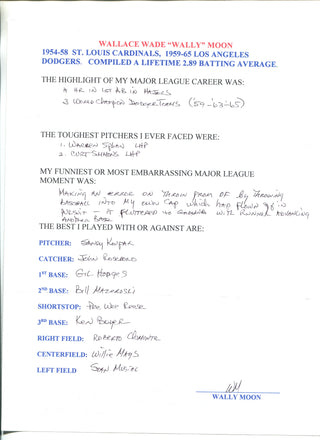 WALLACE WADE "WALLY" MOON
1954-58 ST. LOUIS CARDINALS, 1959-65 LOS ANGELES
DODGERS. COMPILED A LIFETIME 2.89 BATTING AVERAGE.
THE HIGHLIGHT OF MY MAJOR LEAGUE CAREER WAS:
HR IN 1ST AB IN MAJORS
3 WORLD CHAMPION DODGER TEAMS (59-63-65)
THE TOUGHEST PITCHERS I EVER FACED WERE:
1. WARREN SPAHN LHP
2. CURT SIMMONS LHP
MY FUNNIEST OR MOST EMBARRASSING MAJOR LEAGUE
MOMENT WAS:
MAKING AN ERROR ON THROW FROM OF BY THROWING
BASEBALL INTO MY OWN CAP WHICH HAD FLOWN OFF IN
FLIGHT - IT FLUTTERED TO GROUND WITH RUNNER ADVANCING
ANOTHER BASE
THE BEST I PLAYED WITH OR AGAINST ARE:
PITCHER: SANDY KOUFAX
CATCHER: JOHN ROSEBORO
1ST BASE: GIL HODGES
2ND BASE: BILL MAZEROSKI
SHORTSTOP: PEE WEE REESE
3RD BASE: KEN BOYER
RIGHT FIELD: ROBERTO CLEMENTE
CENTERFIELD: WILLIE MAYS
LEFT FIELD STAN MUSIAL
WM
WALLY MOON